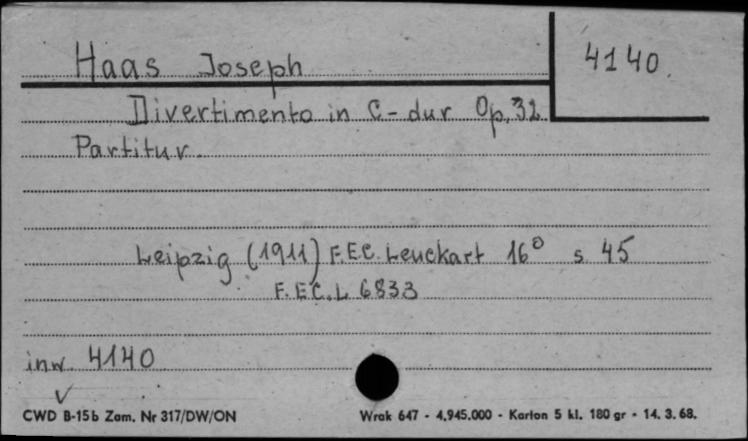 Haas Joseph
4140.
Divertimento in C-dur Op. 32
Partitur.
Leipzig (1911) F.E.C. Leuckart 16° s 45
F.E.C.L 6833
inw. 4140
CWD B-15b Zam. Nr 317/DW/ON
Wrak 647 - 4.945.000 - Karton 5 kl. 180 gr - 14. 3. 68.